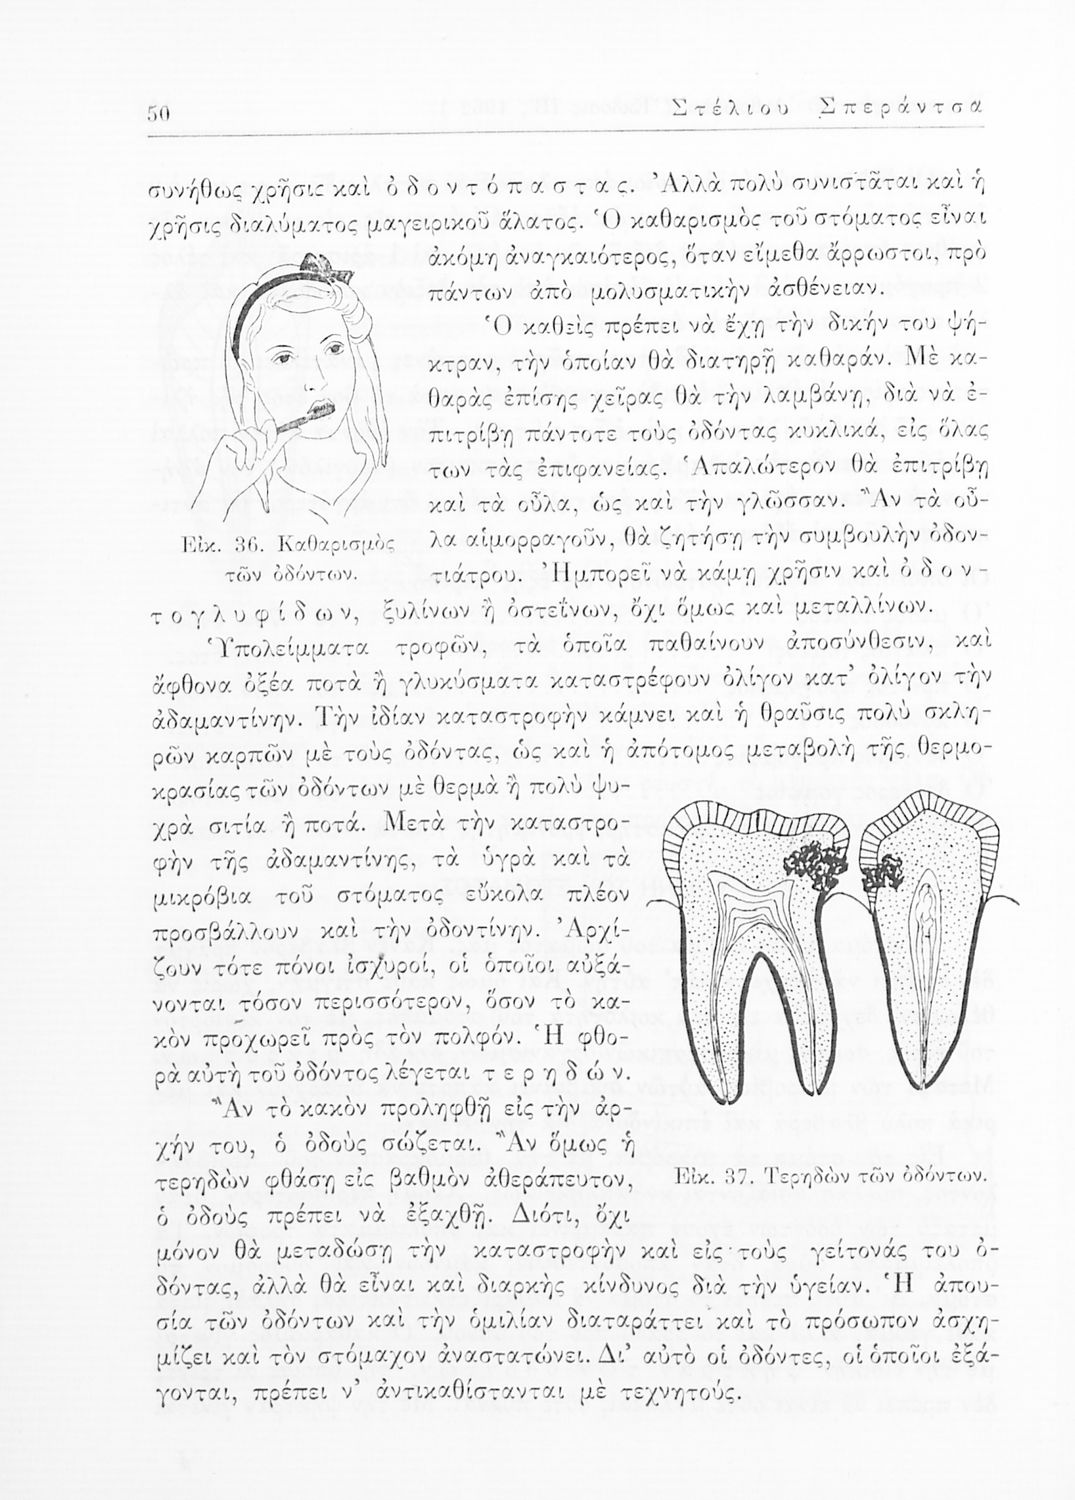 50
Στέλιου Σπεράντσα
συνήθως χρῆσις καὶ ὀδοντόπαστας. Ἀλλὰ πολὺ συνιστᾶται καὶ ἡ
χρῆσις διαλύματος μαγειρικοῦ ἅλατος. Ὁ καθαρισμὸς τοῦ στόματος εἶναι
ἀκόμη ἀναγκαιότερος, ὅταν εἴμεθα ἄρρωστοι, πρὸ
πάντων ἀπὸ μολυσματικὴν ἀσθένειαν.
Ὁ καθεὶς πρέπει νὰ ἔχῃ τὴν δικήν του ψή-
κτραν, τὴν ὁποίαν θὰ διατηρῇ καθαράν. Μὲ κα-
θαρὰς ἐπίσης χεῖρας θὰ τὴν λαμβάνῃ, διὰ νὰ ἐ-
πιτρίβῃ πάντοτε τοὺς ὀδόντας κυκλικά, εἰς ὅλας
των τὰς ἐπιφανείας. Ἁπαλώτερον θὰ ἐπιτρίβῃ
καὶ τὰ οὖλα, ὡς καὶ τὴν γλῶσσαν. Ἂν τὰ οὖ-
λα αἱμορραγοῦν, θὰ ζητήσῃ τὴν συμβουλὴν ὀδον-
τιάτρου. Ἠμπορεῖ νὰ κάμῃ χρῆσιν καὶ ὀδον-
τογλυφίδων, ξυλίνων ἢ ὀστεΐνων, ὄχι ὅμως καὶ μεταλλίνων.
Εἰκ. 36. Καθαρισμὸς
τῶν ὀδόντων.
Ὑπολείμματα τροφῶν, τὰ ὁποῖα παθαίνουν ἀποσύνθεσιν, καὶ
ἄφθονα ὀξέα ποτὰ ἢ γλυκύσματα καταστρέφουν ὀλίγον κατ’ ὀλίγον τὴν
ἀδαμαντίνην. Τὴν ἰδίαν καταστροφὴν κάμνει καὶ ἡ θραῦσις πολὺ σκλη-
ρῶν καρπῶν μὲ τοὺς ὀδόντας, ὡς καὶ ἡ ἀπότομος μεταβολὴ τῆς θερμο-
κρασίας τῶν ὀδόντων μὲ θερμὰ ἢ πολὺ ψυ-
χρὰ σιτία ἢ ποτά. Μετὰ τὴν καταστρο-
φὴν τῆς ἀδαμαντίνης, τὰ ὑγρὰ καὶ τὰ
μικρόβια τοῦ στόματος εὔκολα πλέον
προσβάλλουν καὶ τὴν ὀδοντίνην. Ἀρχί-
ζουν τότε πόνοι ἰσχυροί, οἱ ὁποῖοι αὐξά-
νονται τόσον περισσότερον, ὅσον τὸ κα-
κὸν προχωρεῖ πρὸς τὸν πολφόν. Ἡ φθο-
ρὰ αὐτὴ τοῦ ὀδόντος λέγεται τερηδών.
Ἂν τὸ κακὸν προληφθῇ εἰς τὴν ἀρ-
χήν του, ὁ ὀδοὺς σώζεται. Ἂν ὅμως ἡ
τερηδὼν φθάσῃ εἰς βαθμὸν ἀθεράπευτον,
ὁ ὀδοὺς πρέπει νὰ ἐξαχθῇ. Διότι, ὄχι
Εἰκ. 37. Τερηδὼν τῶν ὀδόντων.
μόνον θὰ μεταδώσῃ τὴν καταστροφὴν καὶ εἰς τοὺς γείτονάς του ὀ-
δόντας, ἀλλὰ θὰ εἶναι καὶ διαρκὴς κίνδυνος διὰ τὴν ὑγείαν. Ἡ ἀπου-
σία τῶν ὀδόντων καὶ τὴν ὁμιλίαν διαταράττει καὶ τὸ πρόσωπον ἀσχη-
μίζει καὶ τὸν στόμαχον ἀναστατώνει. Δι’ αὐτὸ οἱ ὀδόντες, οἱ ὁποῖοι ἐξά-
γονται, πρέπει ν’ ἀντικαθίστανται μὲ τεχνητούς.